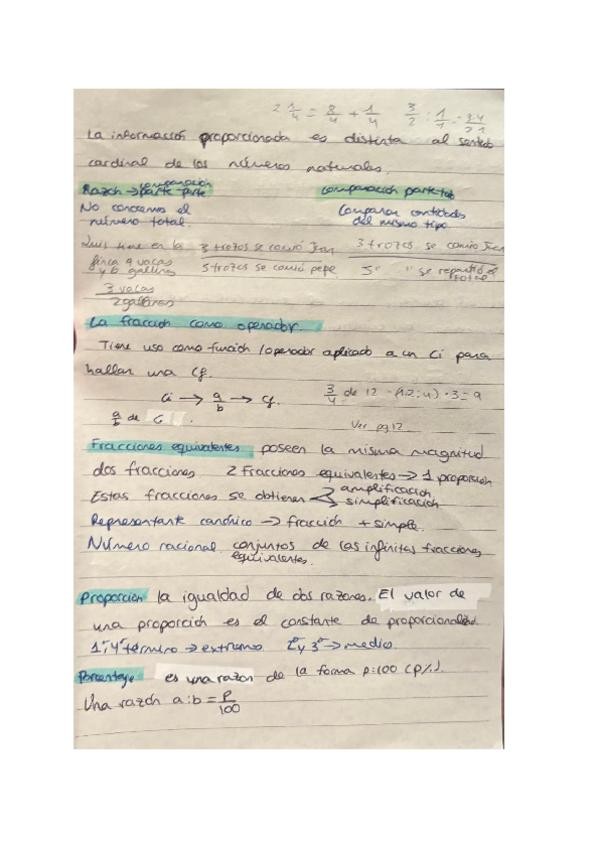 2 1/4 = 8/4 + 1/4   3/2 : 1/1 = 3·4/2·1
La información proporcionada es distinta al sentido
cardinal de los números naturales.
Razón → comparación parte-parte   comparación parte-todo
No conocemos el número total.   Comparar cantidades del mismo tipo.
Luis tiene en la finca 9 vacas y 6 gallinas   3 trozos se comió Juan   3 trozos se comió Juan
5 trozos se comió pepe   5 " " se repartió
3 vacas
2 gallinas
La fracción como operador.
Tiene uso como función/operador aplicado a un Ci para
hallar una Cf.
Ci → a/b → Cf.   3/4 de 12 = (12:4)·3=9
a/b de C
Ver pg 12
Fracciones equivalentes poseen la misma magnitud
dos fracciones 2 Fracciones equivalentes → 1 proporción
Estas fracciones se obtienen < amplificación
simplificación
Representante canónico → fracción + simple.
Número racional conjuntos de las infinitas fracciones
equivalentes.
Proporción la igualdad de dos razones. El valor de
una proporción es el constante de proporcionalidad.
1º y 4º término → extremo. 2º y 3º → medio.
Porcentaje es una razón de la forma p:100 (p%).
Una razón a:b = p/100